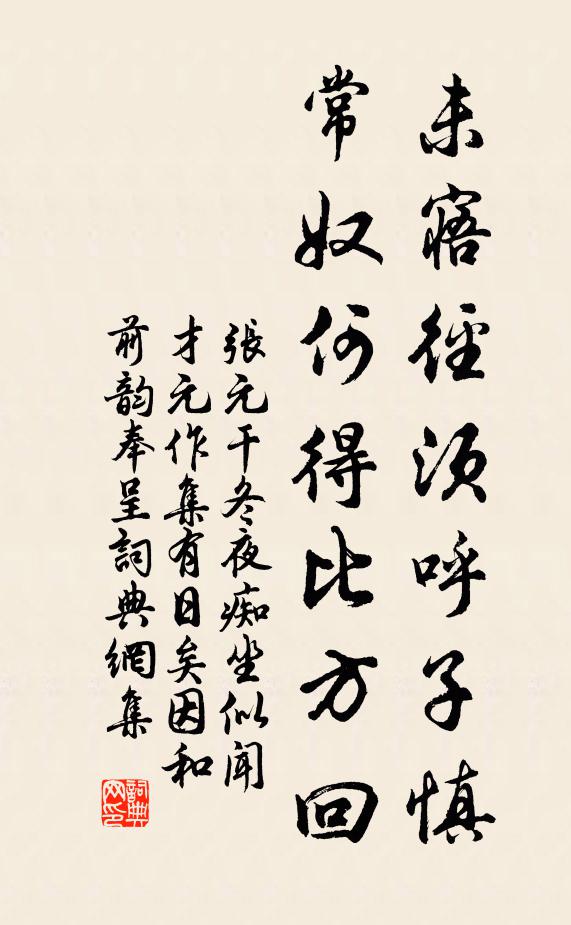 未寤徑須呼子慎
常奴何得比方回
張元干冬夜痴坐似闻
才元作集有日矣因和
前韵奉呈詞典網集
詞典
网印